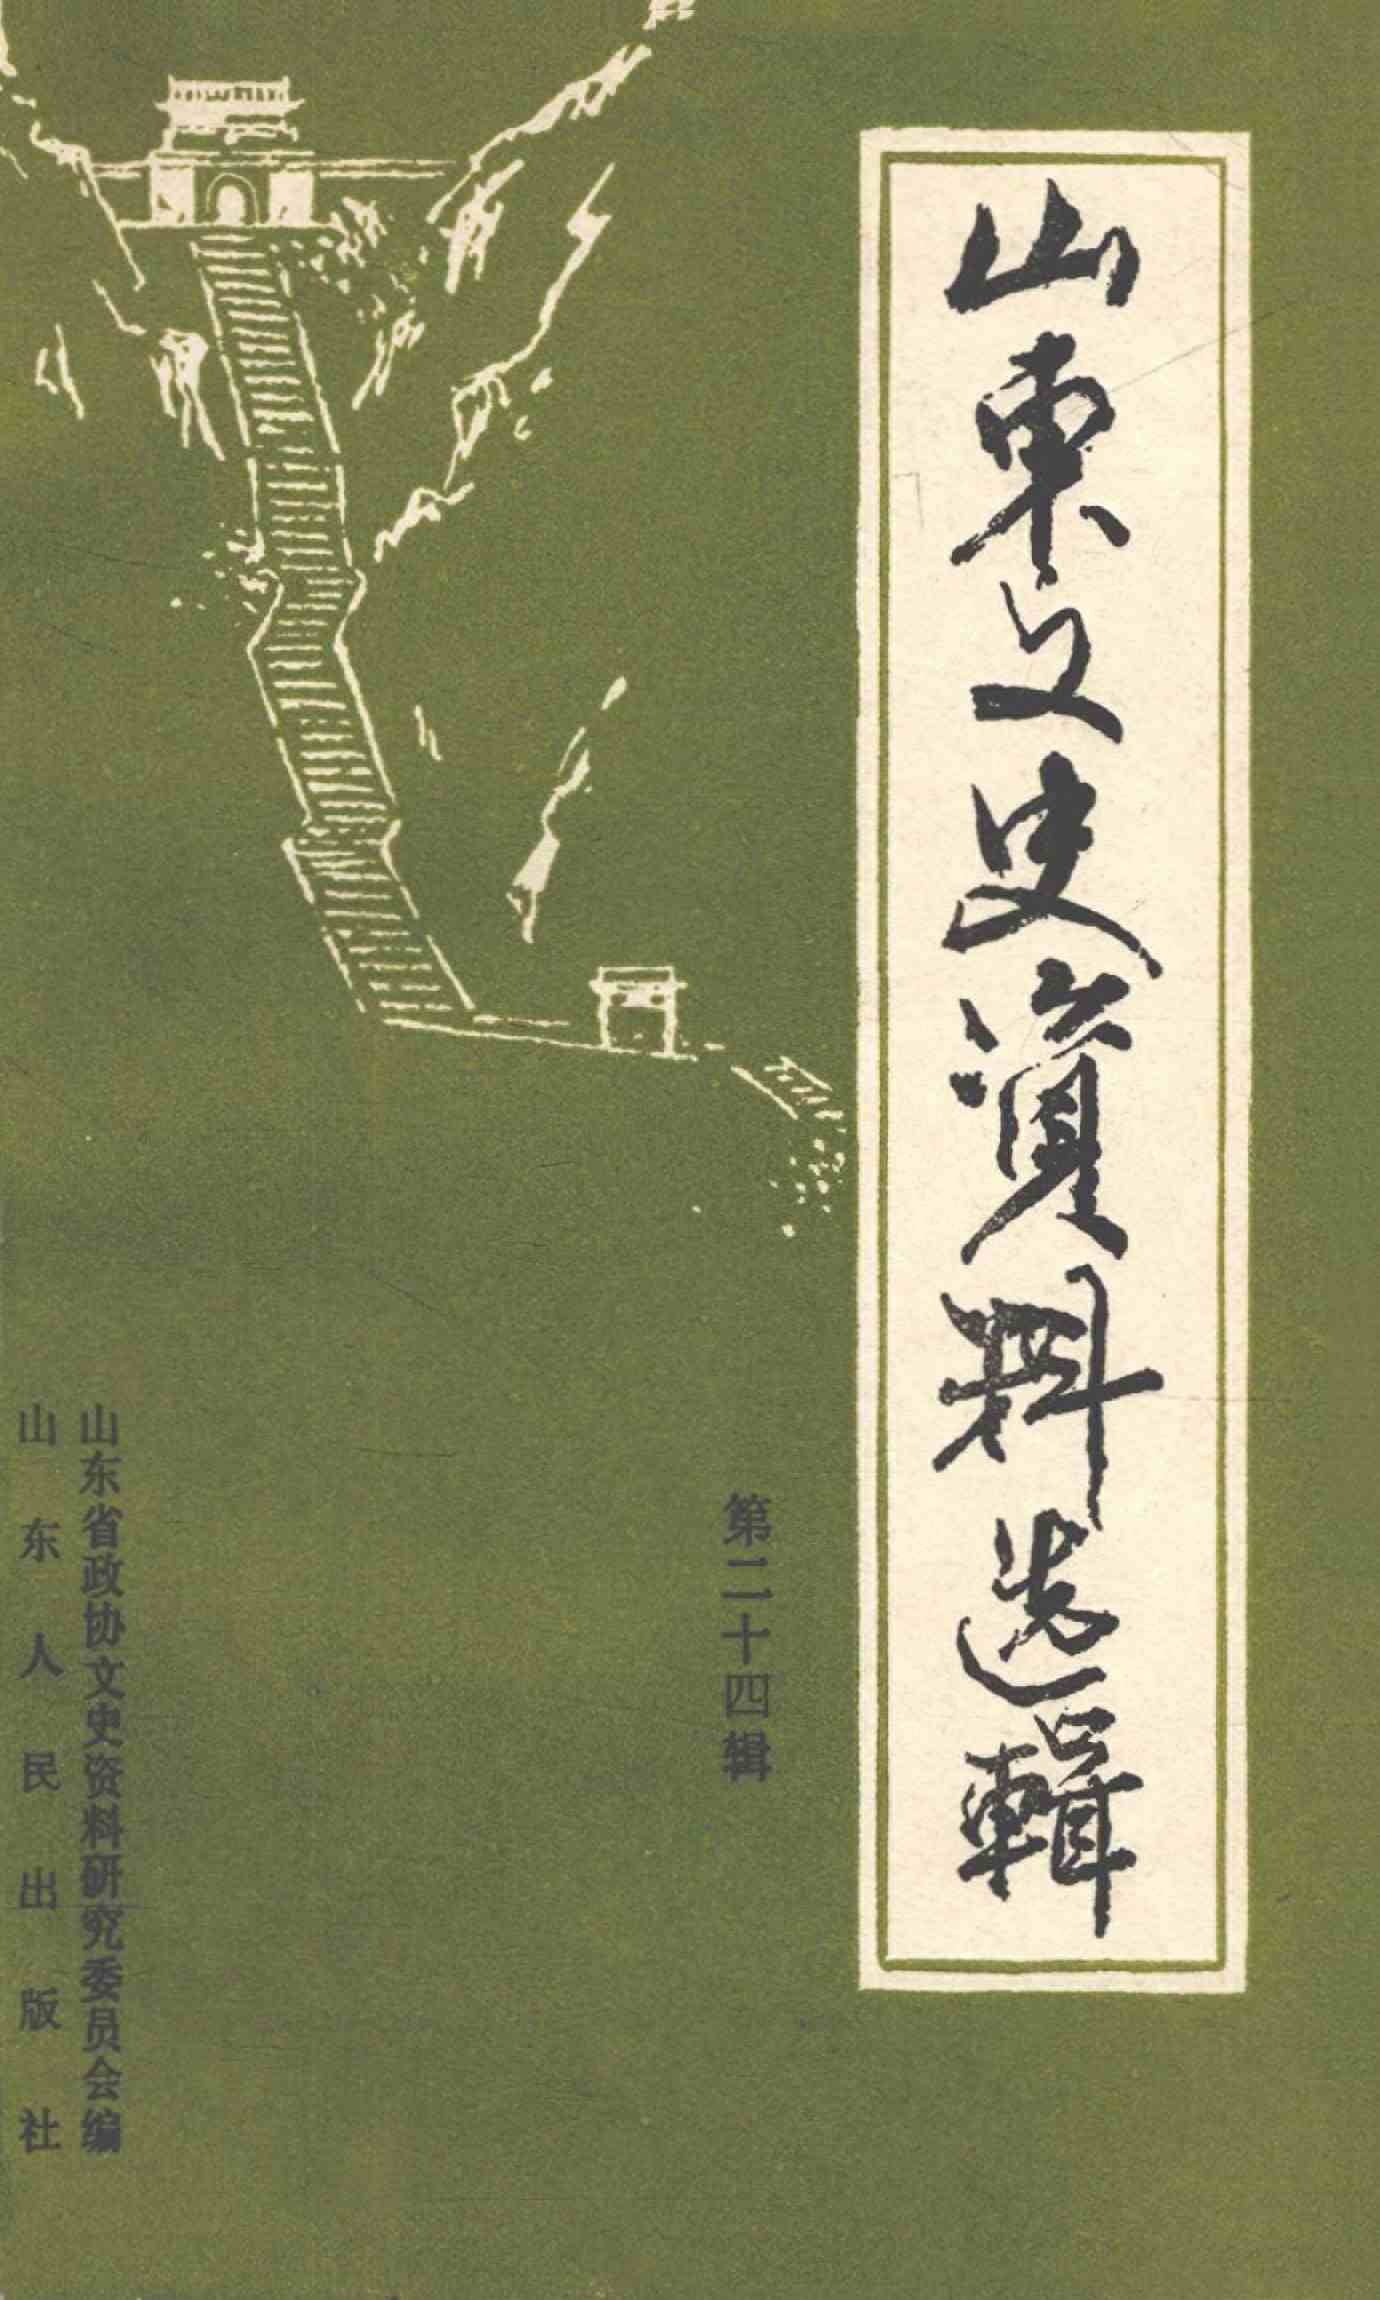 山東文史資料选輯
第二十四辑
山东省政协文史资料研究委员会编
山东人民出版社